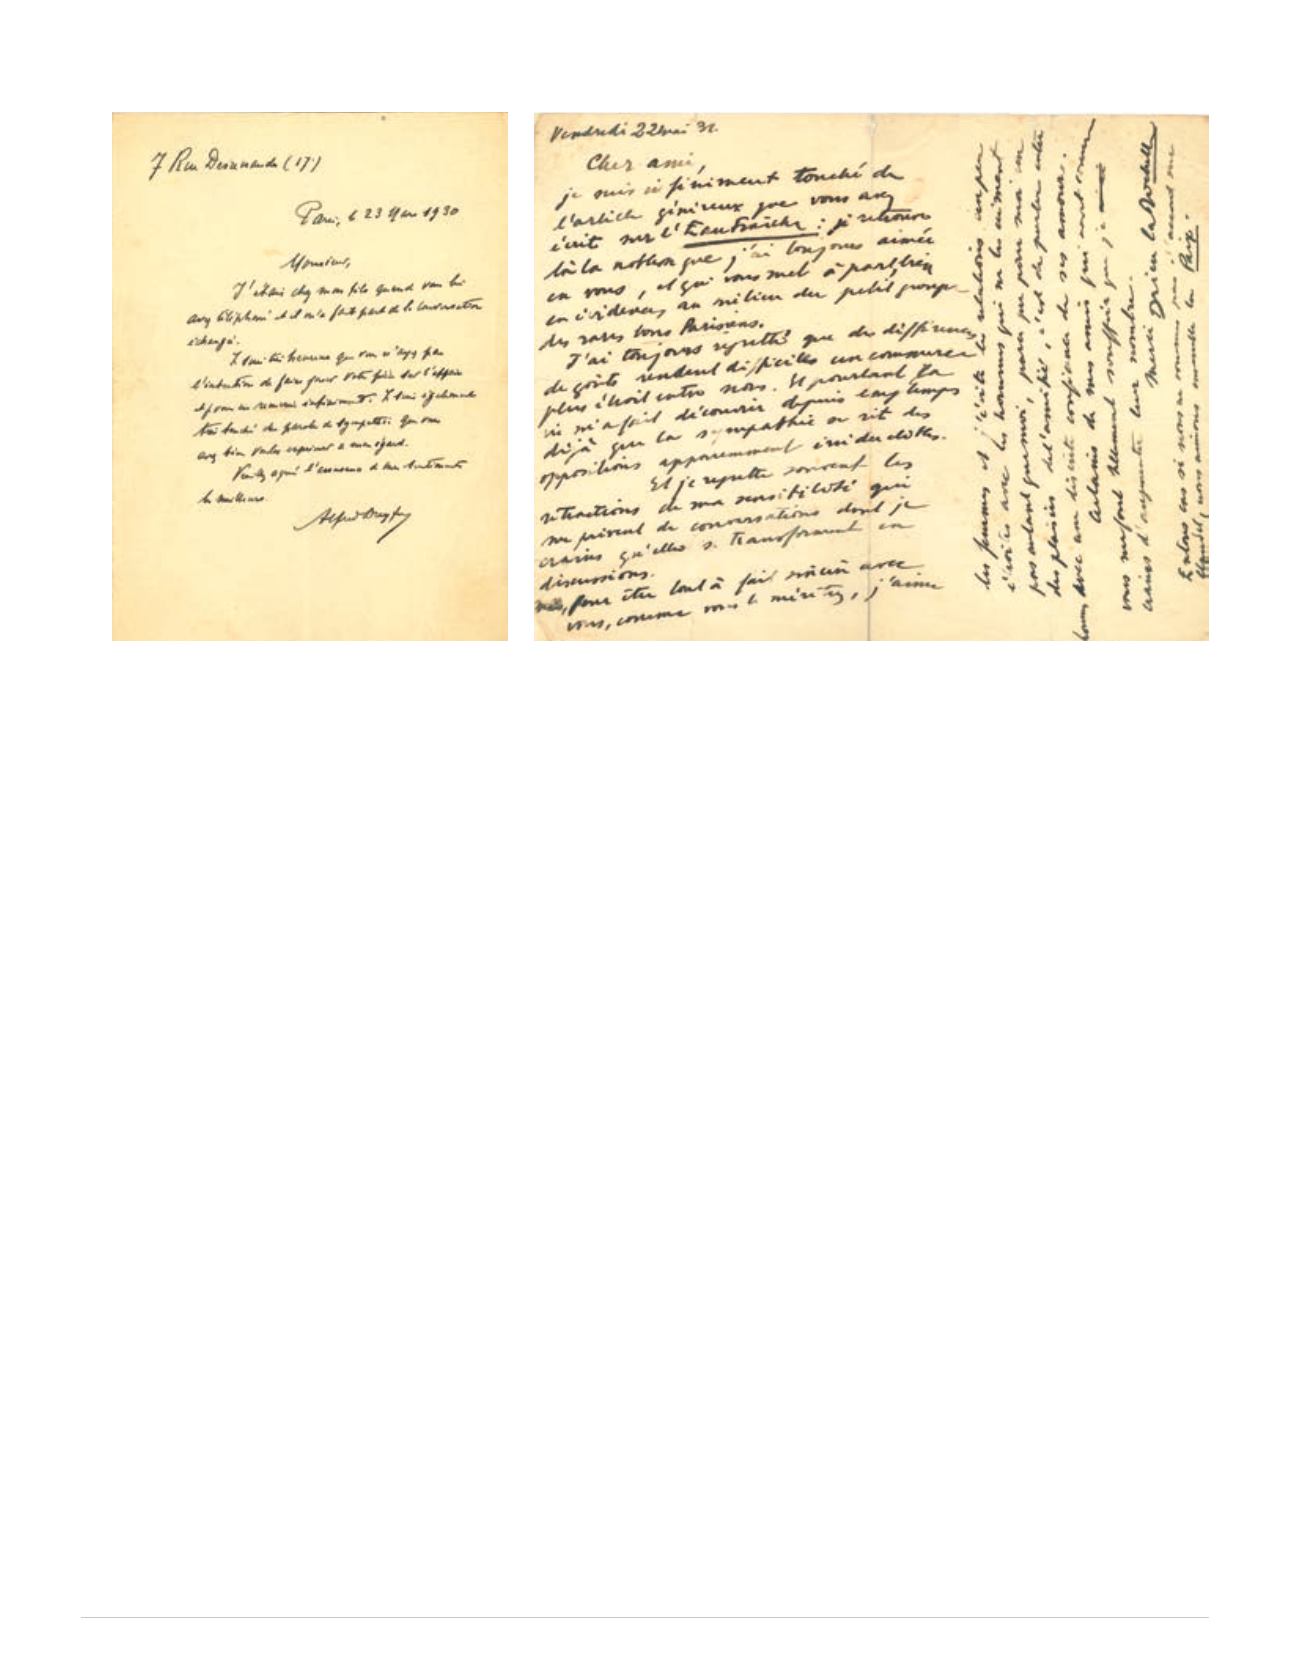 7 Rue Desrenaude (17)
Paris, le 23 1930
Monsieur,
J'étais chez mon fils quand vous lui
avez téléphoné et il m'a fait part de la conversation
échangée.
Je suis très heureux que vous n'ayez pas
l'intention de faire jouer votre pièce sur l'affaire
et vous en remercie infiniment. Je suis également
très touché des paroles de sympathie que vous
avez bien voulu exprimer à mon égard.
Veuillez agréer l'assurance de mes sentiments
les meilleurs.
Alfred Dreyfus
Vendredi 22 mai 31
Cher ami,
je suis infiniment touché de
l'article généreux que vous avez
écrit sur l'Eau Fraîche : je retrouve
là la noblesse que j'ai toujours aimée
en vous, et qui vous met à part, bien
en évidence au milieu du petit groupe
des rares bons Parisiens.
J'ai toujours regretté que des différences
de goûts rendent difficiles un commerce
plus étroit entre nous. Et pourtant la
vie m'a fait découvrir depuis longtemps
déjà que la sympathie se rit des
oppositions apparemment irréductibles.
Et je regrette souvent les
rétractions de ma sensibilité qui
me privent de conversations dont je
crains qu'elles se transforment en
discussions.
Mais, pour être tout à fait sincère avec
vous, comme vous le méritez, j'aime
les femmes et j'évite les relations un peu
étroites avec les hommes qui ne les aiment
pas autant que moi, parce que pour moi un
des plaisirs de l'amitié, c'est de parler entre
avec une discrète confiance de ses amours.
Certains de mes amis qui sont comme
vous me font tellement souffrir que je
crains d'augmenter leur nombre.
Merci Drieu la Rochelle
En tous cas si nous ne sommes pas d'accord sur
nous aimons ensemble la Paix.